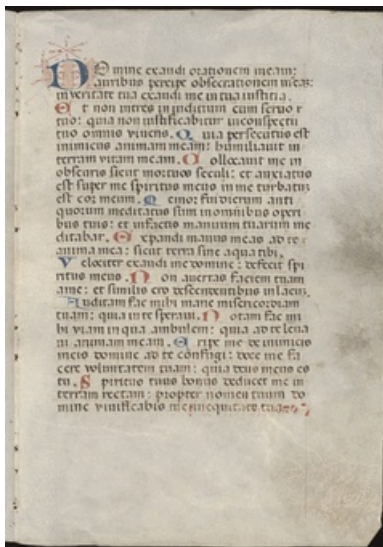 Domine exaudi orationem meam:
auribus percipe obsecrationem meam:
in veritate tua exaudi me in tua iusticia.
Et non intres in iuditium cum servo t
tuo: quia non iustificabitur in conspectu
tuo omnis vivens. Quia persecutus est
inimicus animam meam: humiliavit in
terram vitam meam. Collocavit me in
obscuris sicut mortuos seculi: et anxiatus
est super me spiritus meus in me turbatum
est cor meum. Memor fui dierum anti
quorum meditatus sum in omnibus operi
bus tuis: et in factis manuum tuarum me
ditabar. Expandi manus meas ad te:
anima mea: sicut terra sine aqua tibi.
Velociter exaudi me domine: defecit spi
ritus meus. Non avertas faciem tuam
a me: et similis ero descendentibus in lacum.
Auditam fac mihi mane misericordiam
tuam: quia in te speravi. Notam fac mi
hi viam in qua ambulem: quia ad te leva
vi animam meam. Eripe me de inimicis
meis domine ad te confugi: doce me fa
cere voluntatem tuam: quia deus meus es
tu. Spiritus tuus bonus deducet me in
terram rectam: propter nomen tuum do
mine vivificabis me in equitate tua